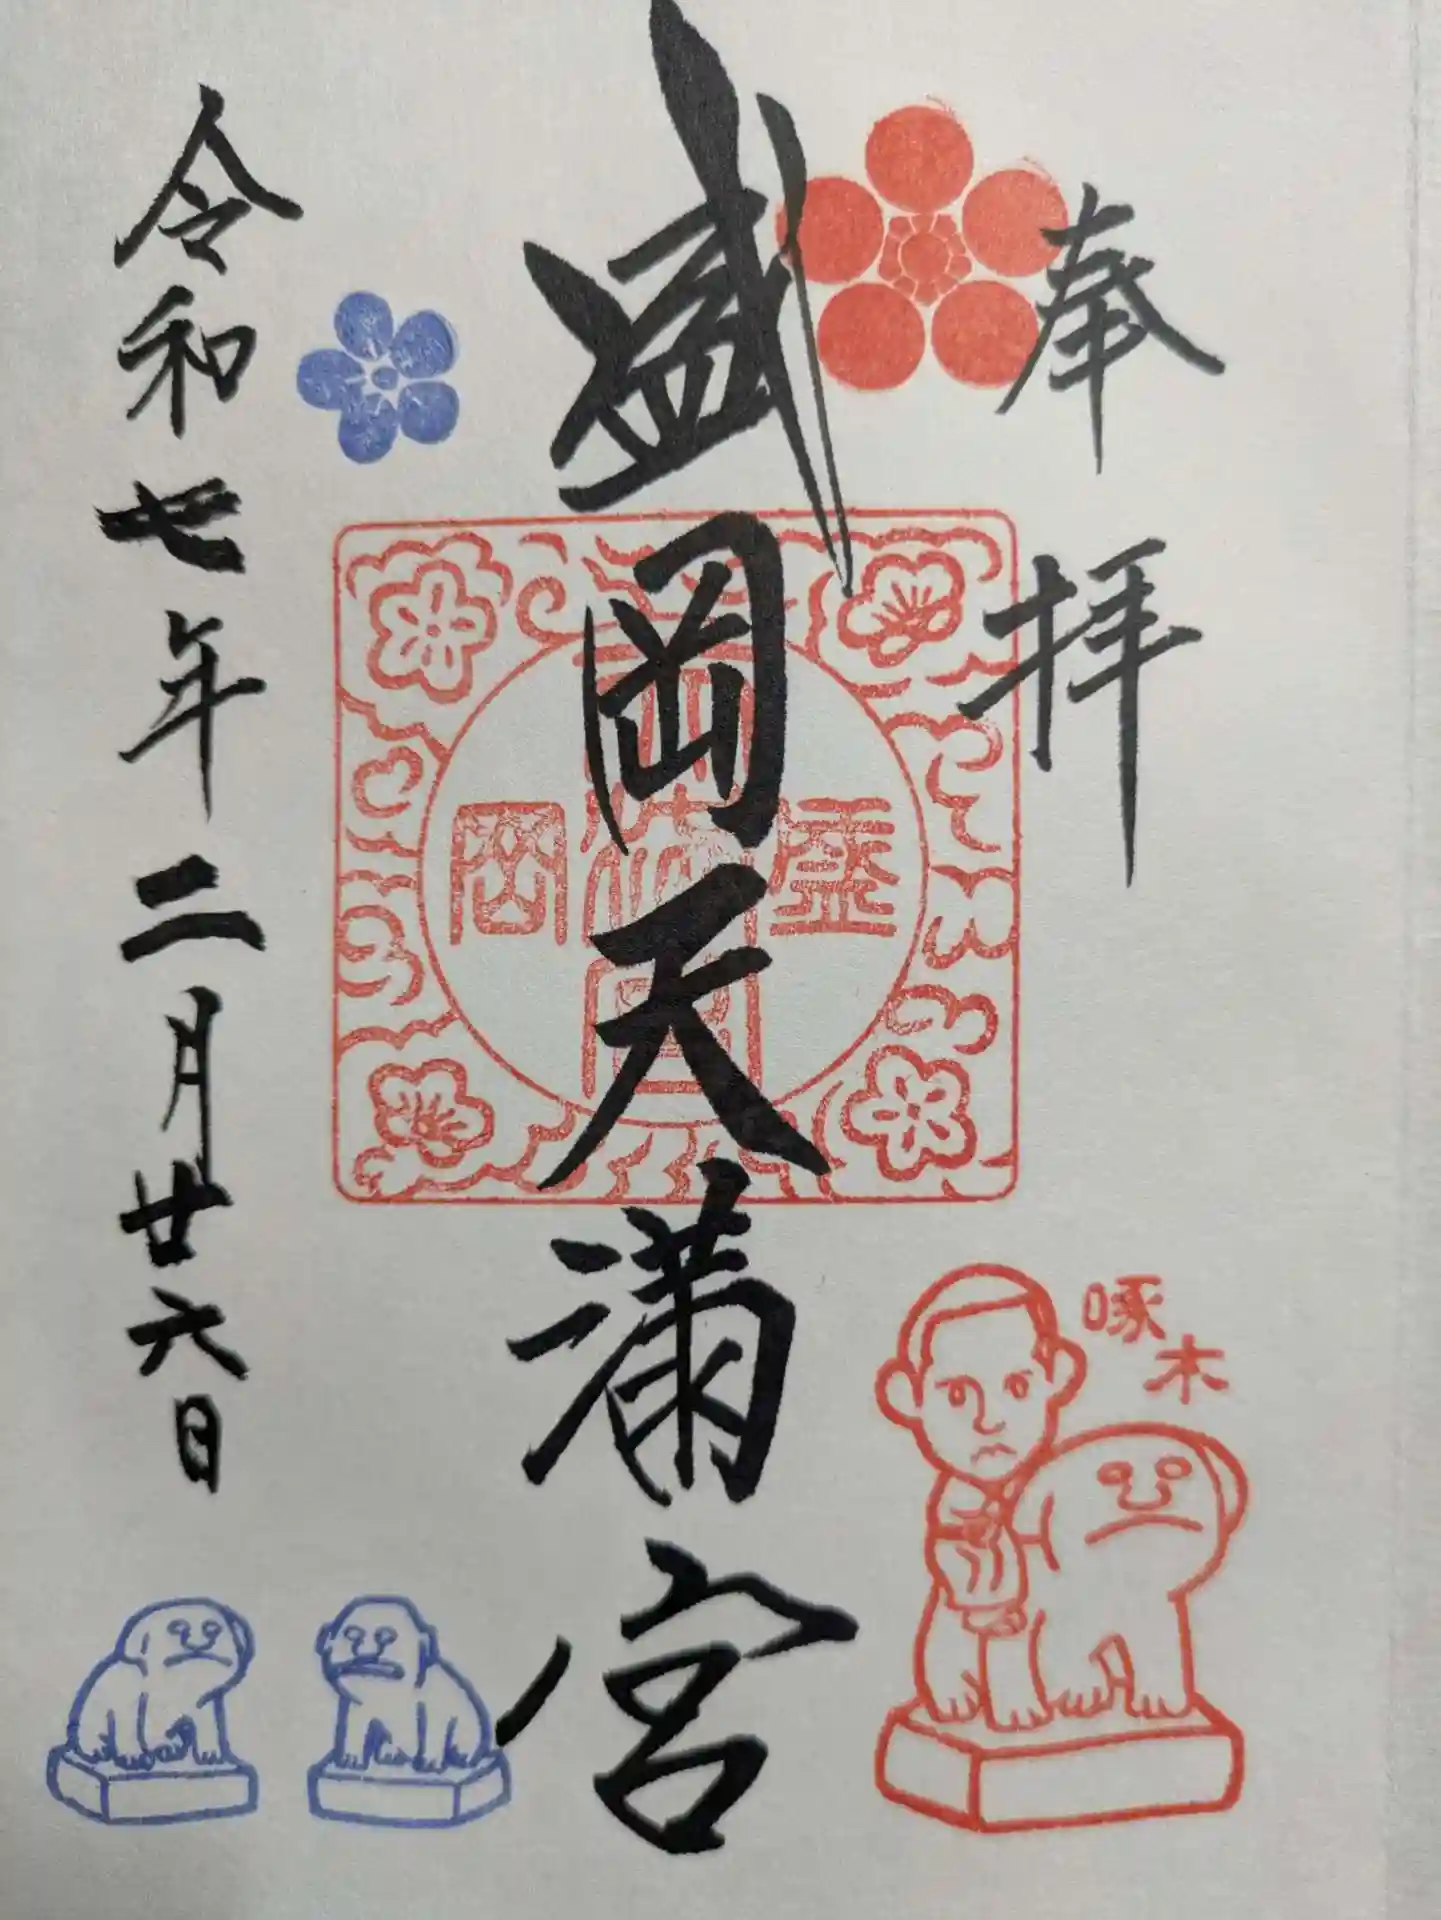 奉拝
盛岡天満宮
盛岡
天満宮
令和七年二月廿六日
啄木